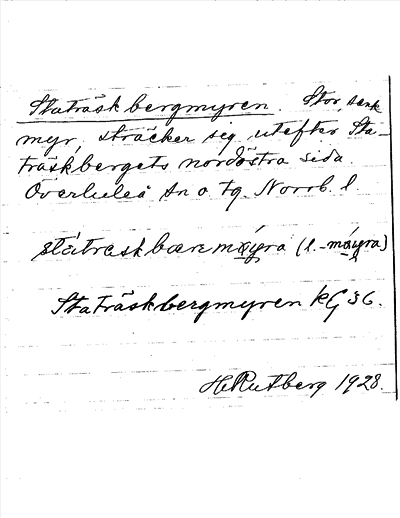 Staträskbergmyren. Stor, sank
myr, sträcker sig utefter Sta-
träskbergets nordöstra sida.
Överluleå sn o. tg. Norrb. l
ståtraskbæremøyra (l. -møyra)
Staträskbergmyren kG 36.
H Rutberg 1928.